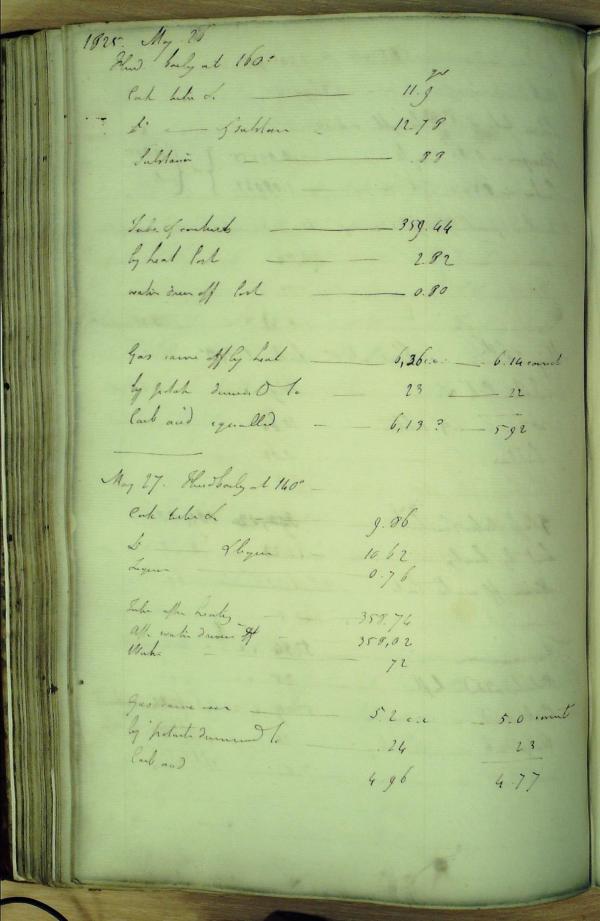 1825. May 26
Fluid boily at 160°
gr
Cork tube &c 11.9
Do of substance 12.78
Substance .88
Tube & contents 359.44
by heat lost 2.82
water driven off lost 0.80
Gas came off by heat 6,36 c.i. 6.14 correct
by potash diminishd to 23 22
Carb acid equalled 6,13 ? 592
May 27. Fluid boily at 140°
Cork tube &c 9.86
Do & liquor 10 62
Liquor 0.76
Tube after heating 358.74
After water driven off 358,02
Water 72
Gas came over 5.2 c.i. 5.0 correct
by potash diminishd to .24 23
Carb acid 4 96 4.77